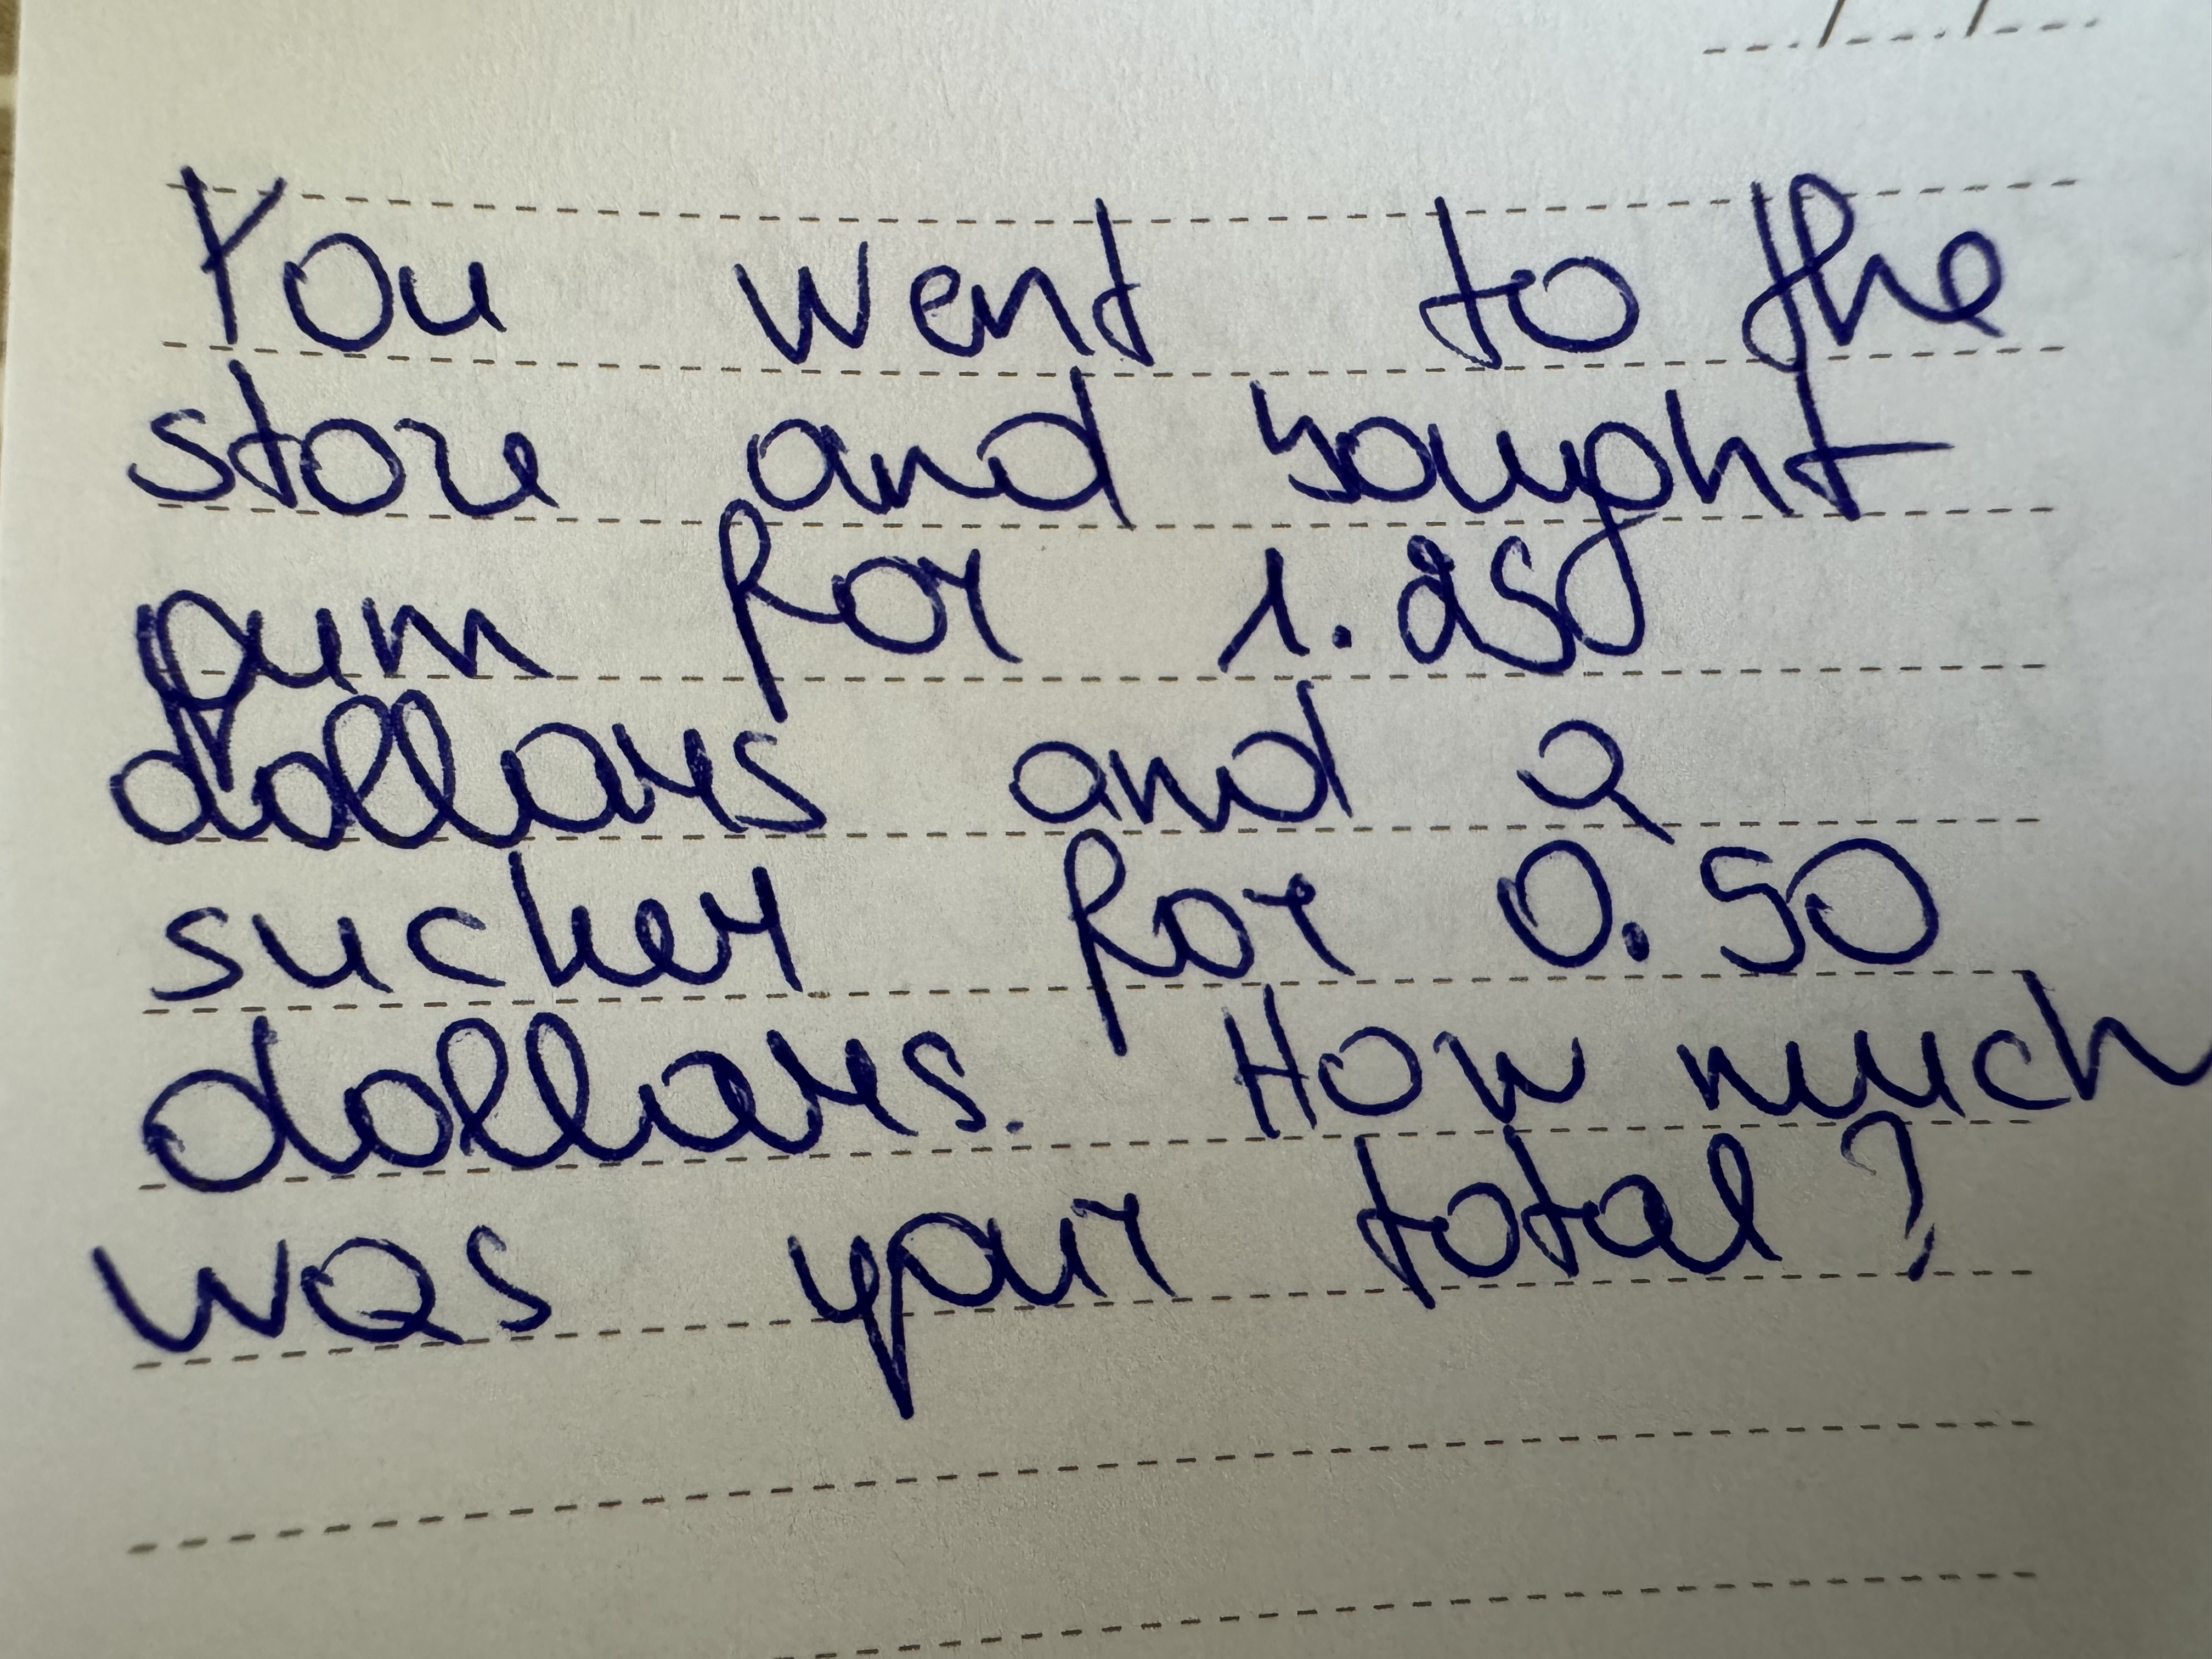 You went to the
store and bought
gum for 1.25
dollars and a
sucker for 0.50
dollars. How much
was your total?